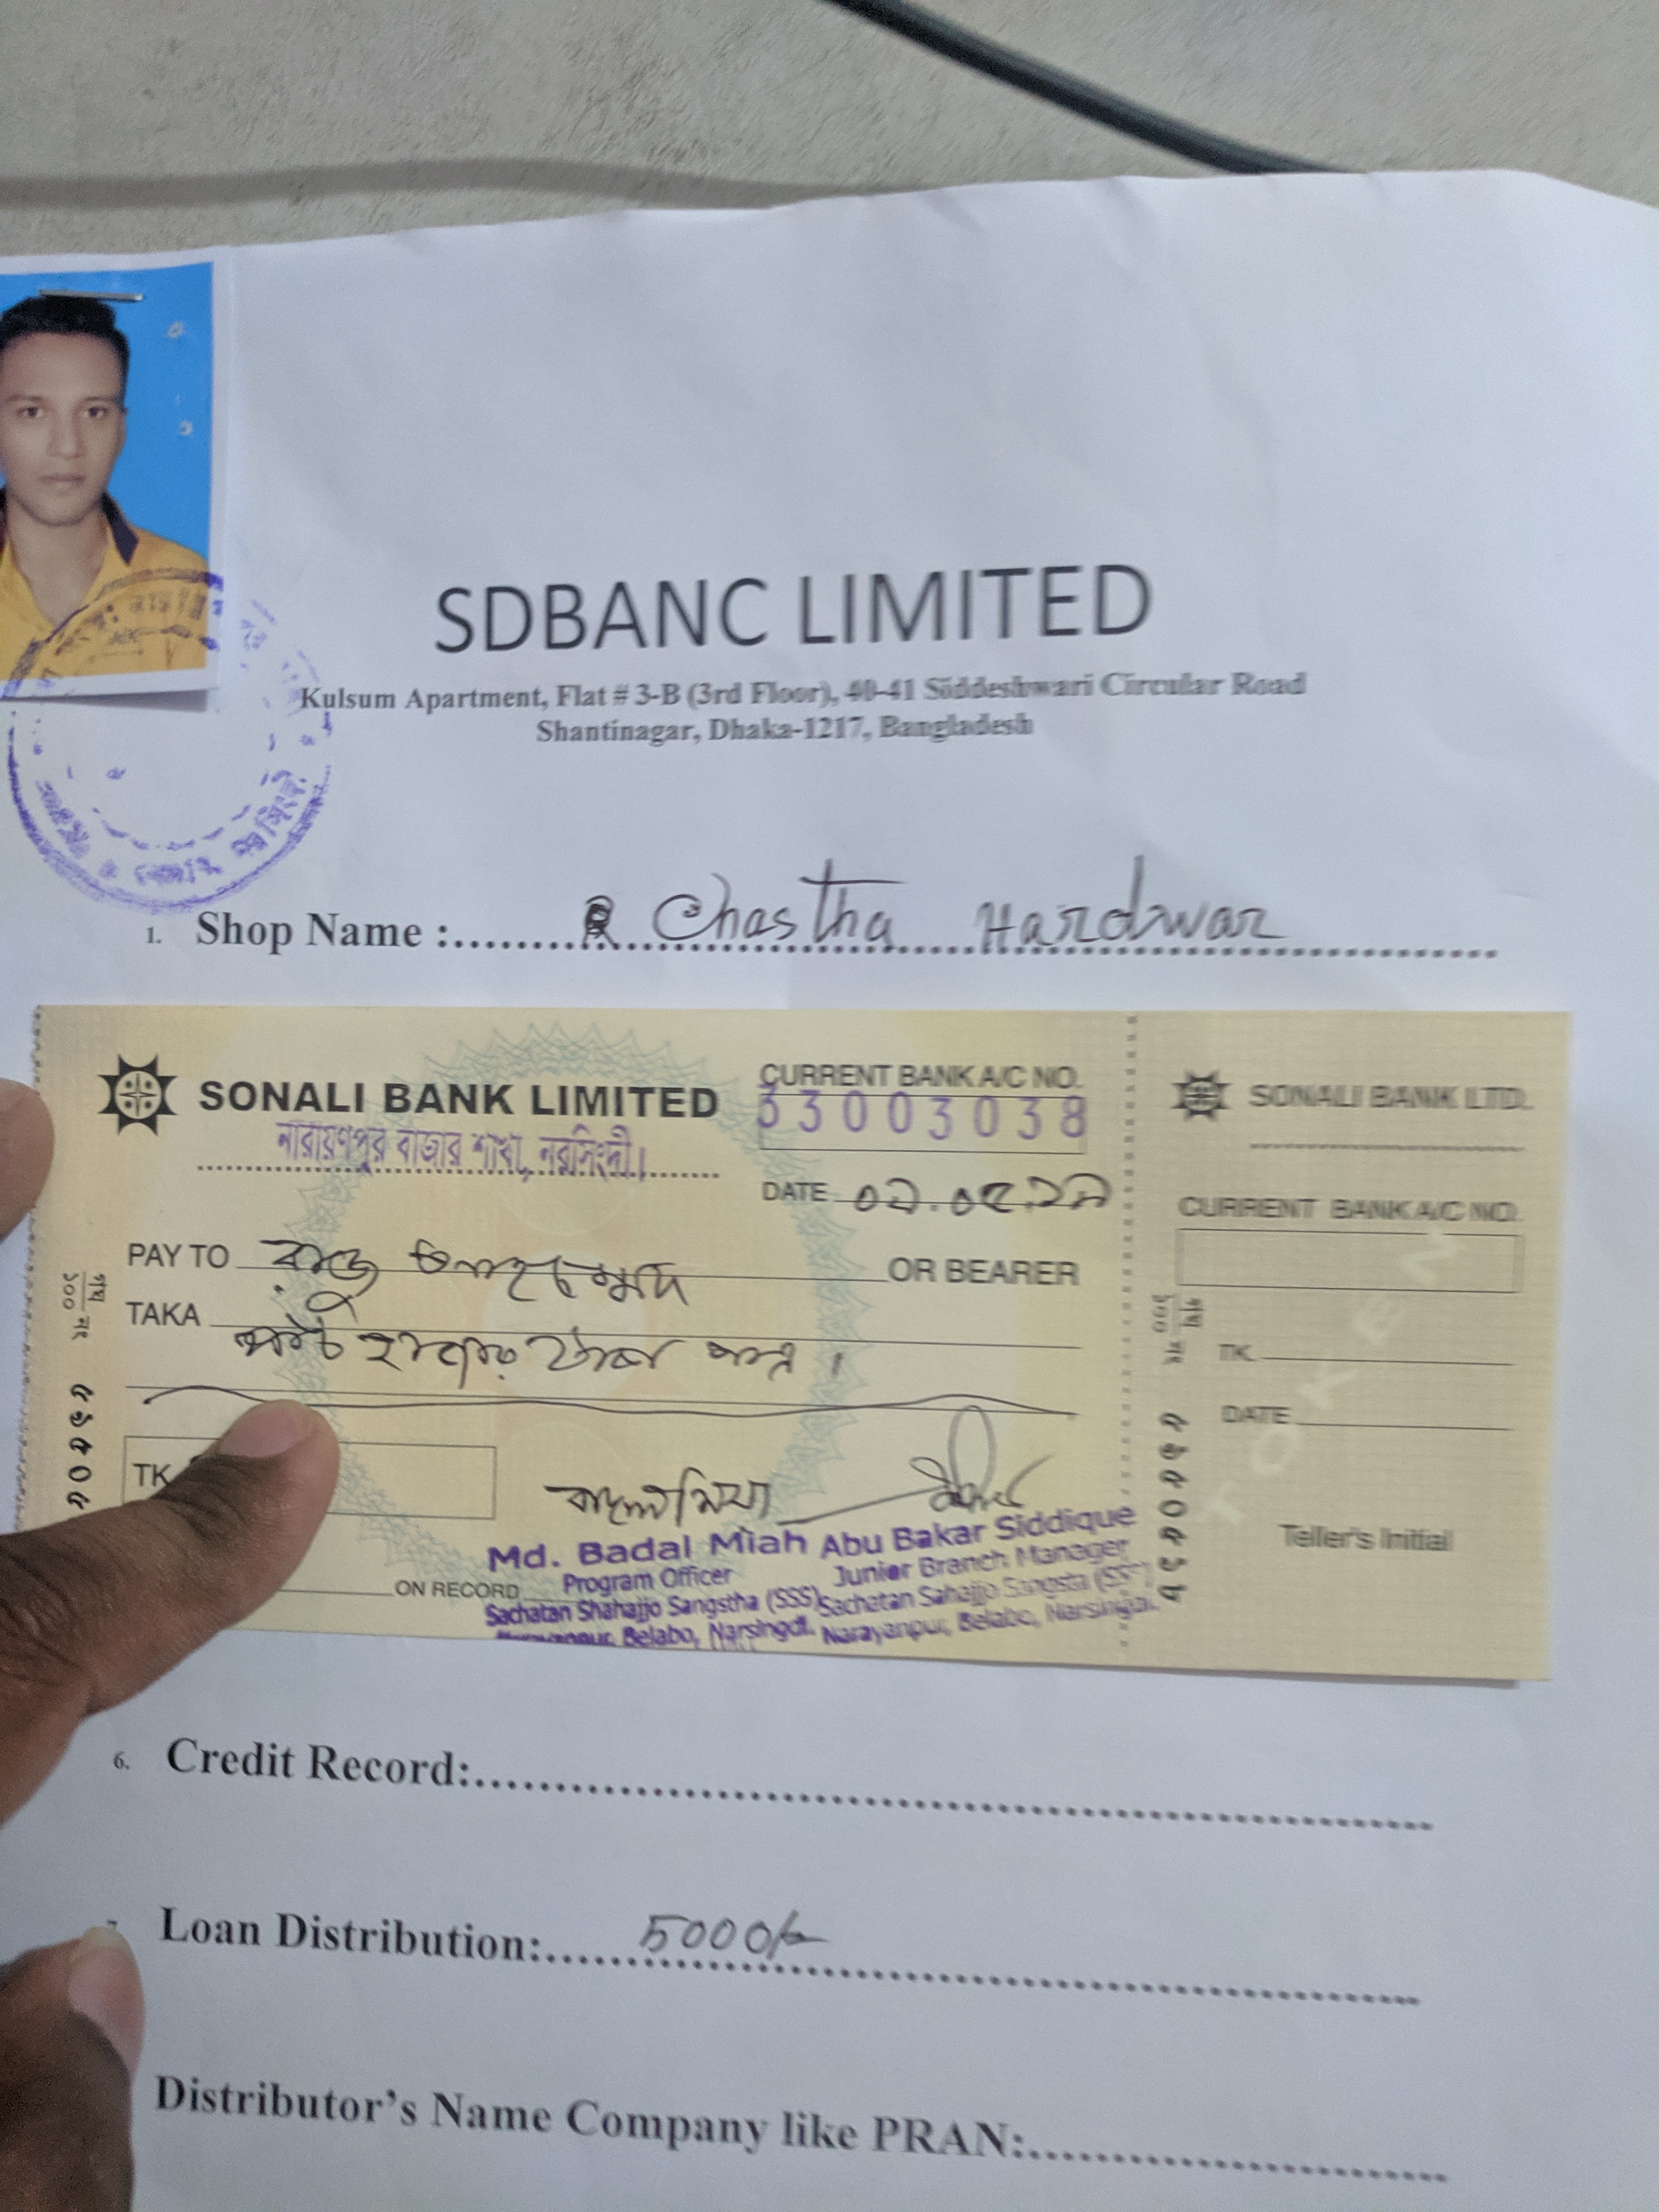 SDBANC LIMITED
Kulsum Apartment, Flat # 3-B (3rd Floor), 40-41 Siddeshwari Circular Road
Shantinagar, Dhaka-1217, Bangladesh
1. Shop Name : Chastha Hardwar
SONALI BANK LIMITED
নারায়ণপুর বাজার শাখা, নরসিংদী।
CURRENT BANK A/C NO.
33003038
DATE ০২.০৫.১৯
PAY TO রাজু আহম্মেদ OR BEARER
TAKA
পাঁচ হাজার টাকা মাত্র।
TK
বাদল মিয়া
Md. Badal Miah
Program Officer
Sachatan Shahajjo Sangstha (SSS)
Narayanpur, Belabo, Narsingdi.
Abu Bakar Siddique
Junior Branch Manager
Sachetan Sahajjo Sangsta (SSS)
Narayanpur, Belabo, Narsingdi.
ON RECORD
SONALI BANK LTD.
CURRENT BANK A/C NO.
TK.
DATE
TOKEN
Teller's Initial
6. Credit Record:
Loan Distribution: 5000/-
Distributor's Name Company like PRAN: